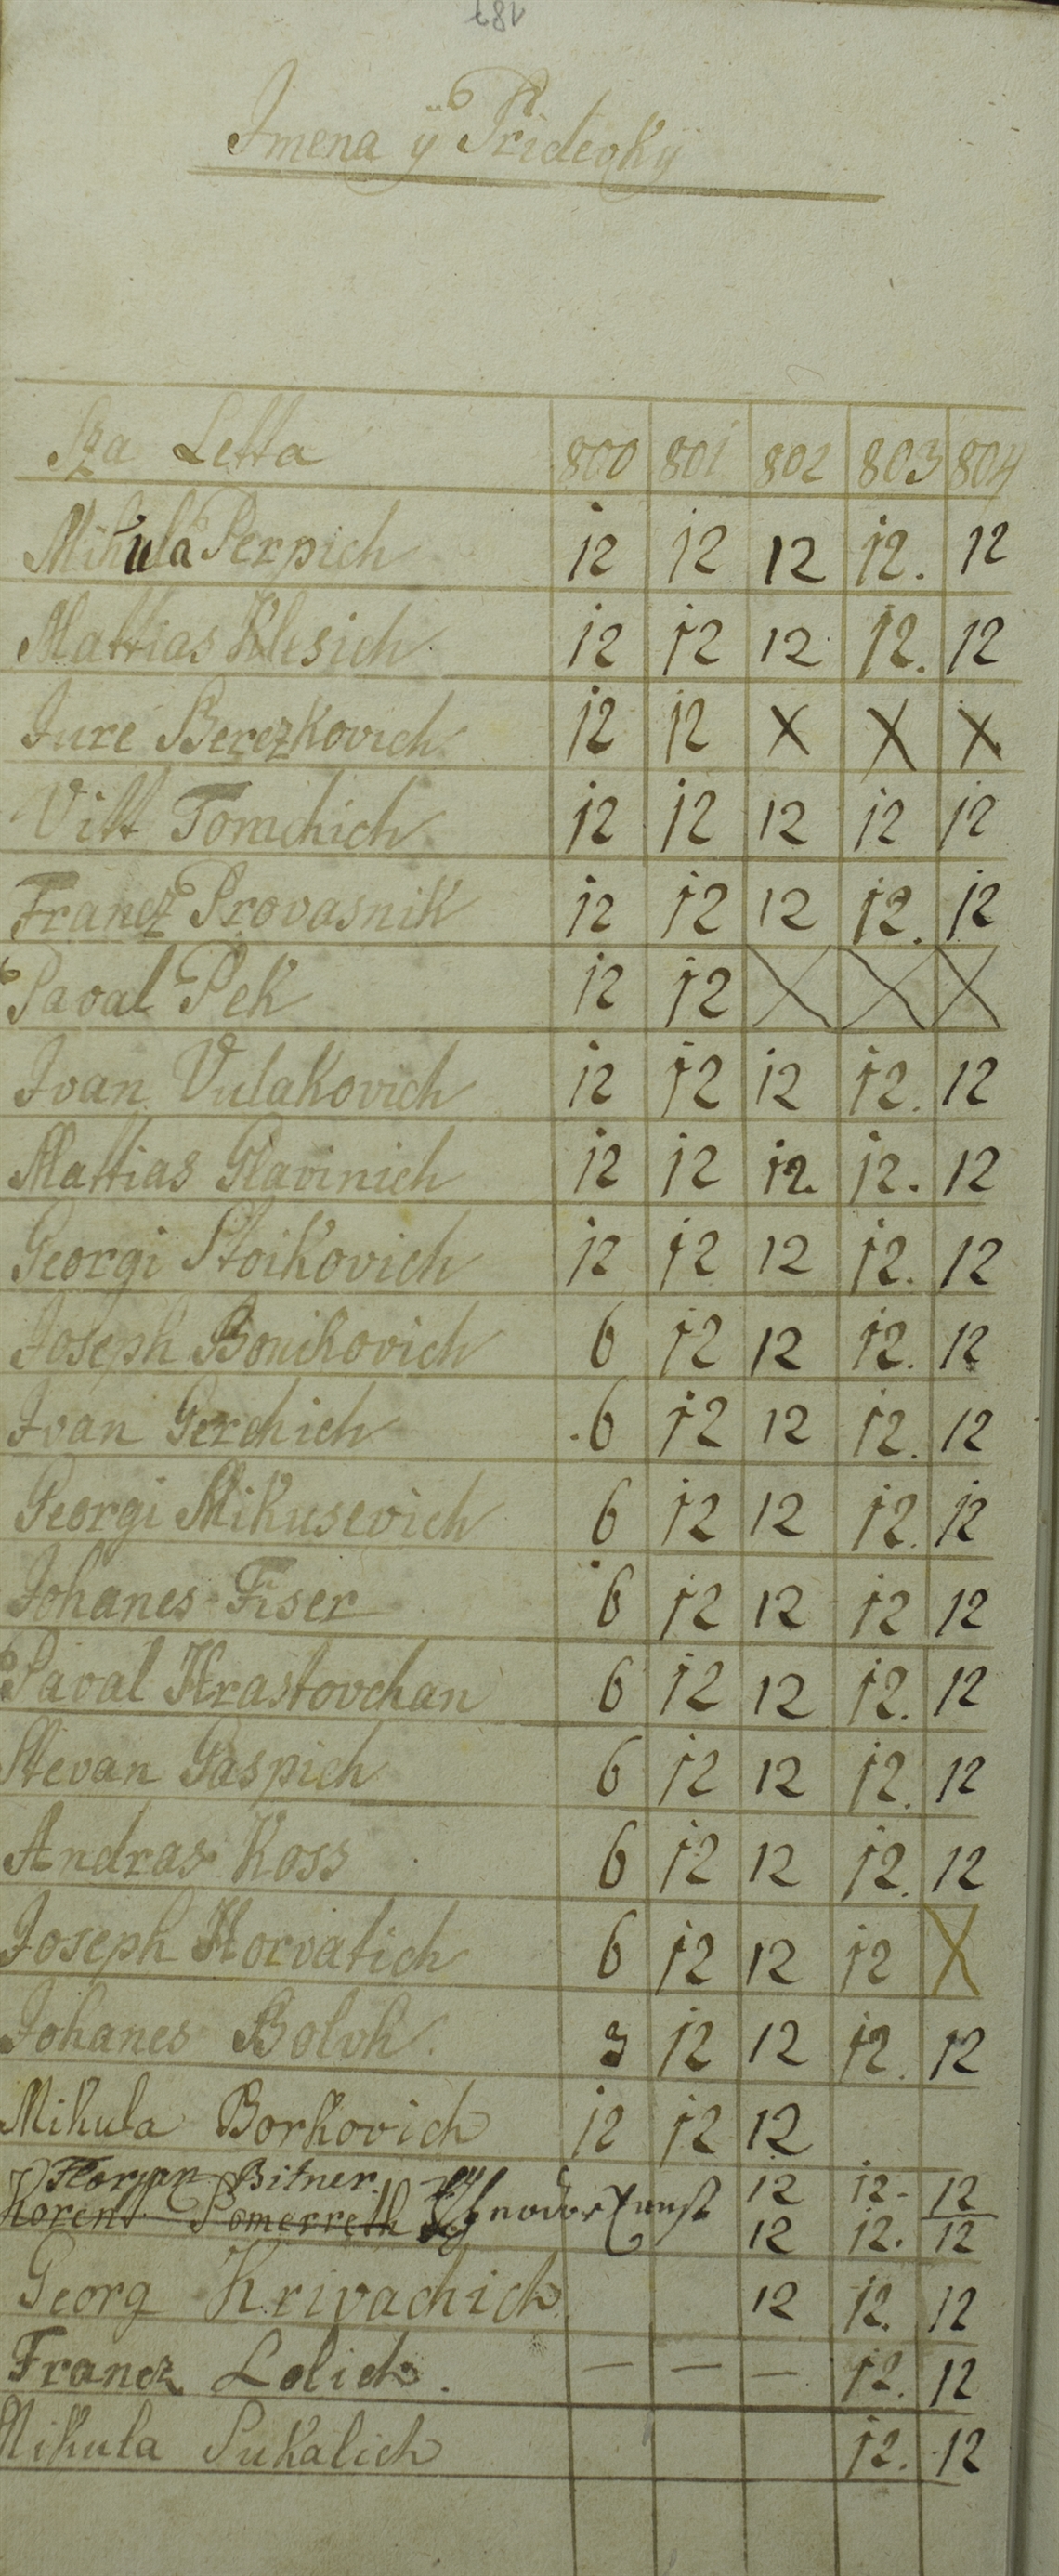 187
Imena ÿ Pridevky
Sza Letta 800 801 802 803 804
Mikula Perpich 12 12 12 12. 12
Mattias Klesich 12 12 12 12. 12
Jure Berezkovich 12 12 X X X
Vitt Tomchich 12 12 12 12 12
Francz Provasnik 12 12 12 12. 12
Paval Pek 12 12 X X X
Ivan Vulakovich 12 12 12 12. 12
Mattias Glavinich 12 12 12. 12. 12
Georgi Stoikovich 12 12 12 12. 12
Joseph Bonikovich 6 12 12 12. 12
Ivan Gerchich 6 12 12 12. 12
Georgi Mikusevich 6 12 12 12. 12
Johanes Fiser 6 12 12 12 12
Paval Hrastovchan 6 12 12 12. 12
Stevan Gaspich 6 12 12 12. 12
Andras Koss 6 12 12 12. 12
Joseph Horvatich 6 12 12 12 X
Johanes Bolvh. 3 12 12 12. 12
Mikula Borkovich 12 12 12
Florjan Bitner. 12 12- 12
Lorent Pomerreth 12 12. 12
Georg Krivachich 12 12. 12
Francz Lolich. — — — 12. 12
Mikula Sukalich 12. 12